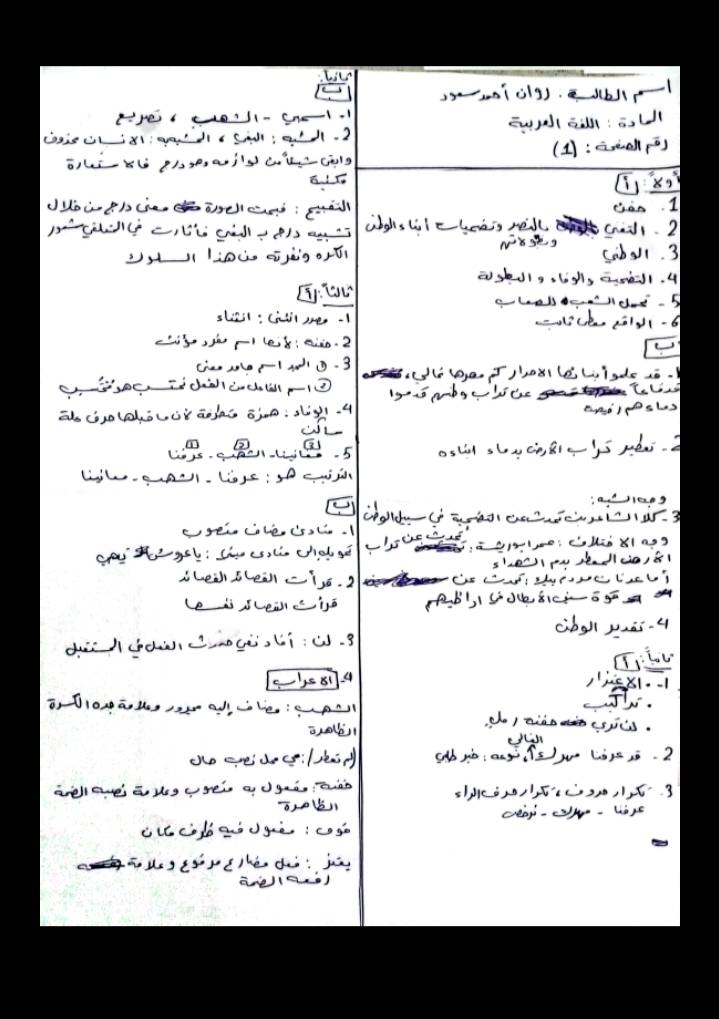 اسم الطالبة : روان أحمد سعود
المادة : اللغة العربية
رقم الصفحة : (1)
أولاً : أ
1. حفن
2. التغني بالنصر وتضحيات أبناء الوطن
وبطولاتهم
3. الوطني
4. التضحية والوفاء و البطولة
5 - تحمل الشعب للصعاب
6 - الواقع معطى ثابت
ب
1 - قد علموا أبنائها الاحرار كم مهرها غالي،
فدفاعاً عن تراب وطنهم قدموا
دماءهم رخيصة
2 - تعطير تراب الأرض بدماء ابناءه
وجه الشبه :
3 - كلا الشاعرين تحدث عن التضحية في سبيل الوطن
وجه الاختلاف : عمر ابو ريشة : تحدث عن تراب
الأرض المعطر بدم الشهداء
أما عدنان مردم بيك : تحدث عن
قوة سن الأبطال في اراضيهم
4 - تقدير الوطن
ثانياً : أ
1 -
• تراكيب
• لن تري حفنة رمل
2 - قد عرفنا مهرك الغالي ، نوعه : خبر طلبي
3. تكرار حروف ، تكرار حرف الراء
عرفنا - مهرك - نرخص
ثانياً :
ب
1 - اسمي - الشهب ، تصريع
2 - المشبه : البغي ، المشبه به : الانسان محذوف
وابقى شيئاً من لوازمه وهو درج فالاستعارة
مكنية
التقبيح : قبحت الصورة معنى درج من خلال
تشبيه درج بـ البغي فأثارت في المتلقي شعور
الكره ونفرته من هذا السلوك
ثالثاً : أ
1 - مصدر انثنى : انثناء
2 - حفنة : لأنها اسم مفرد مؤنث
3 - ① المجد اسم جامد معنى
② اسم الفاعل من الفعل نحتسب هو مُحتسِب
4 - الوفاء : همزة متطرفة لأن ما قبلها حرف علة
ساكن
5 - معانينا - الشهب - عرفنا
الترتيب هو : عرفنا - الشهب - معانينا
ب
1 - منادى مضاف منصوب
تحويله إلى منادى مبني : يا عروس تيهي
2 - قرأت القصائد القصائد
قرأت القصائد نفسها
3 - لن : أفاد نفي حدوث الفعل في المستقبل
4 - الاعراب
الشهب : مضاف إليه مجرور وعلامة جره الكسرة
الظاهرة
(لم تعطر) : في محل نصب حال
حفنة : مفعول به منصوب وعلامة نصبه الضمة
الظاهرة
فوق : مفعول فيه ظرف مكان
فعل مضارع مرفوع وعلامة
رفعه الضمة